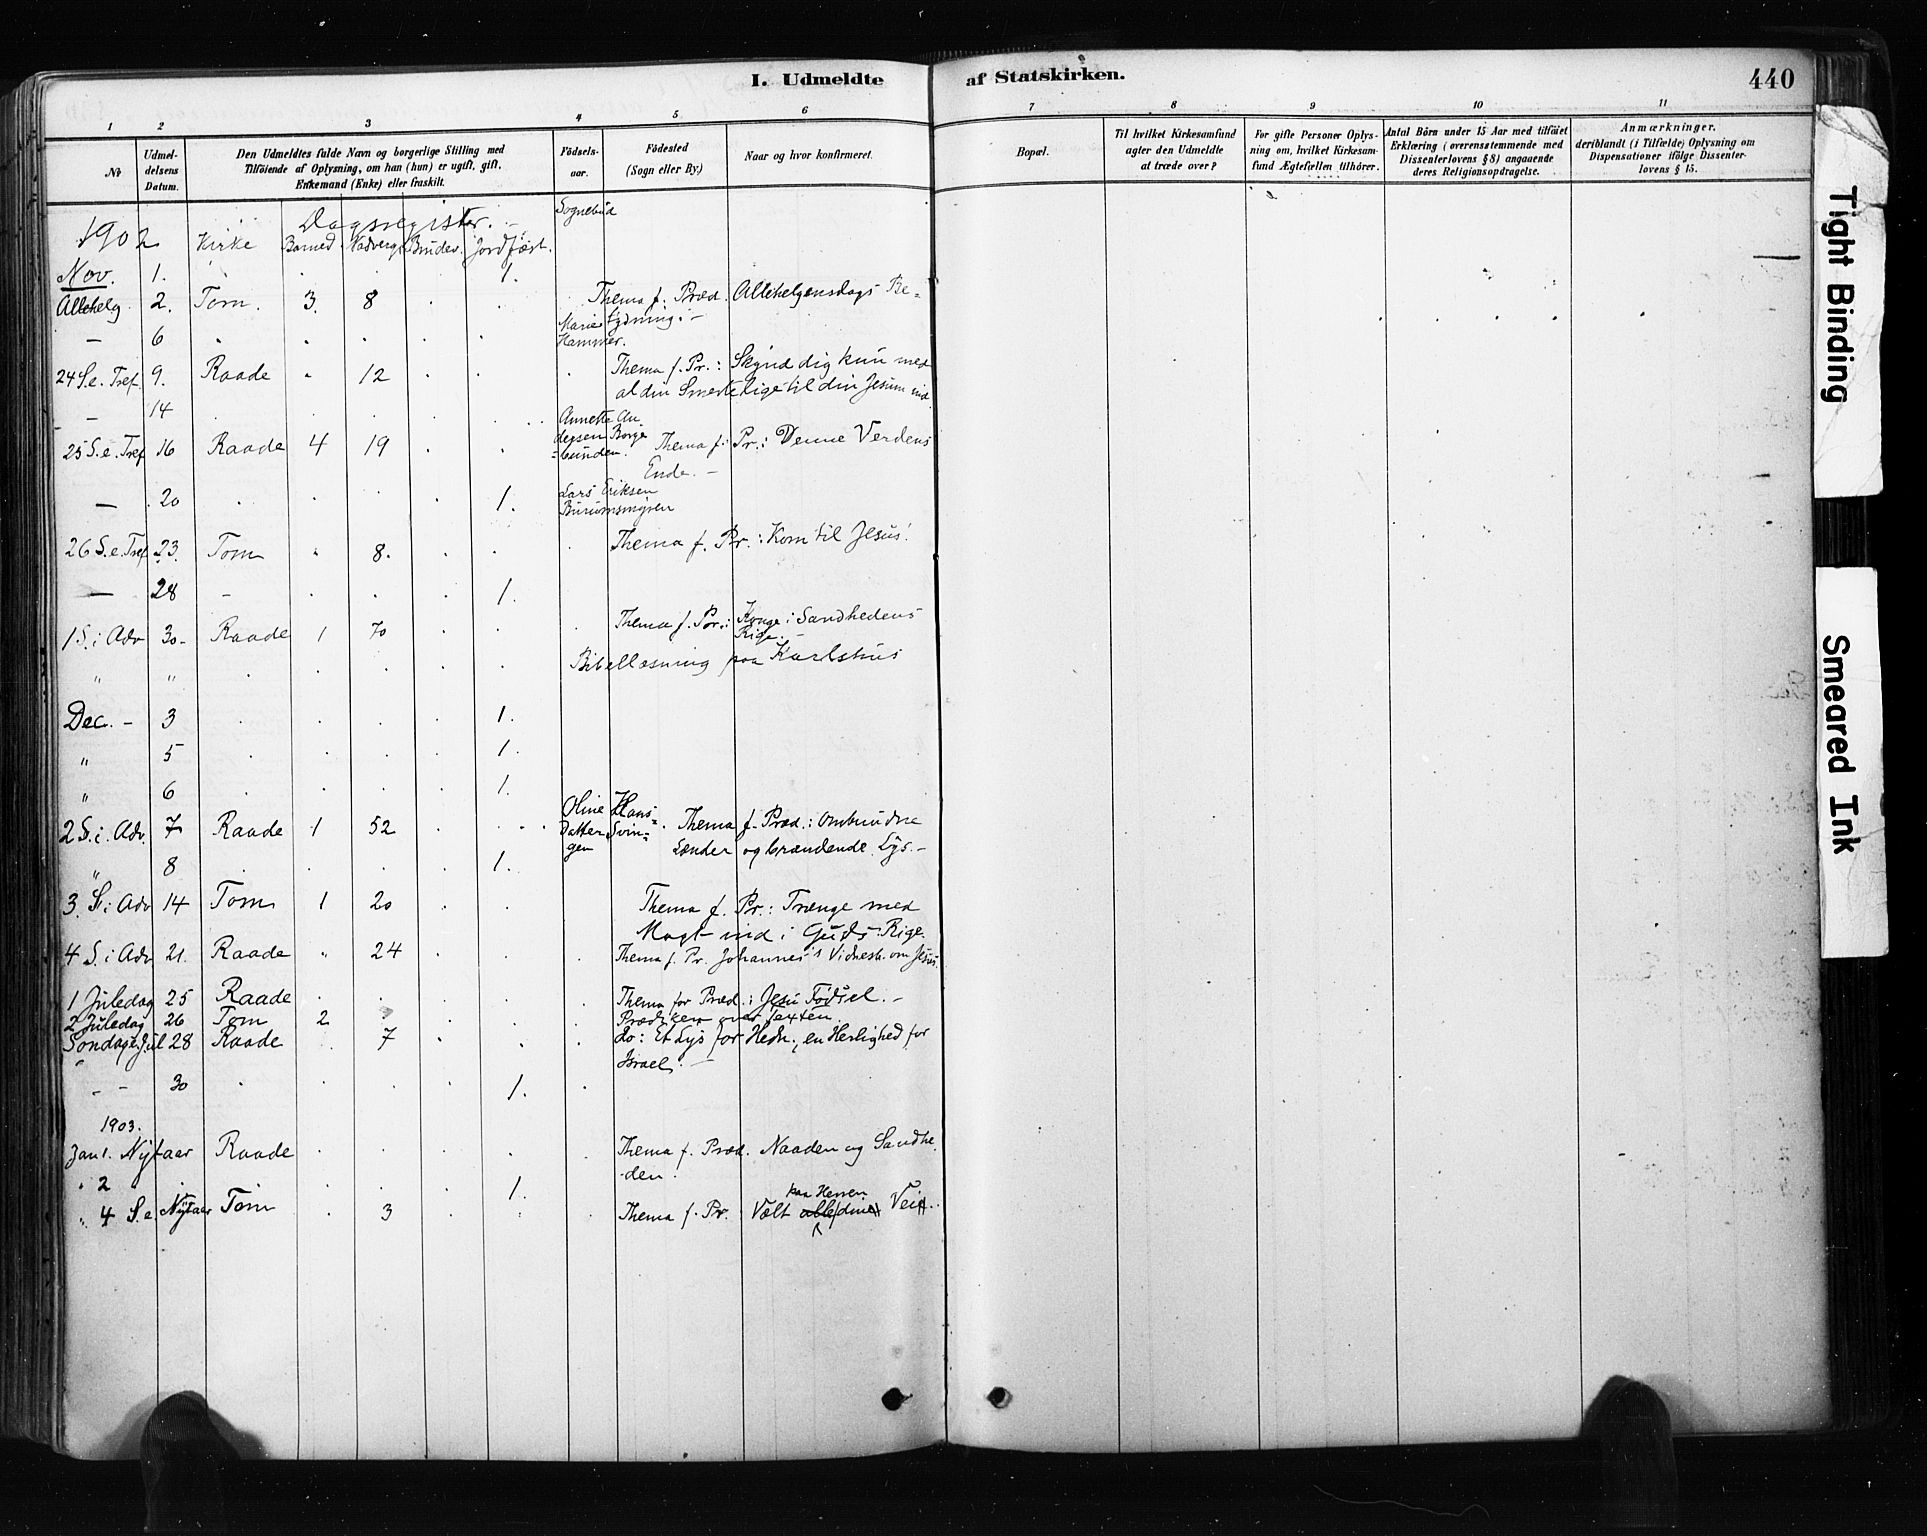 I. Udmeldte af Statskirken.
440
1 2 3 4 5 6 7 8 9 10 11
No
Udmeldelsens Datum.
Den Udmeldtes fulde Navn og borgerlige Stilling med
Tilföiende af Oplysning, om han (hun) er ugift, gift,
Enkemand (Enke) eller fraskilt.
Födselsaar.
Födested
(Sogn eller By.)
Naar og hvor konfirmeret.
Bopæl.
Til hvilket Kirkesamfund
agter den Udmeldte
at træde over?
For gifte Personer Oplysning om, hvilket Kirkesamfund Ægtefællen tilhörer.
Antal Börn under 15 Aar med tilföiet
Erklæring (overensstemmende med
Dissenterlovens § 8) angaaende
deres Religionsopdragelse.
Anmærkninger.
deriblandt (i Tilfælde) Oplysning om
Dispensationer ifölge Dissenterlovens § 15.
Dagsregister. Sognebud
1902 Kirke Barned. Nadverg. Brudev. Jordfæst.
Nov. 1. 1.
Allehelg. 2. Tom. 3. 8 Thema f. Præd. Allehelgensdags Be-
tydning.
— 6 Marie Hammer.
24 S. e. Tref. 9. Raade 12 Thema f. Pr.: Skynd dig kun med
al din Smerte lige til din Jesum ind.
— 14
25 S. e. Tref 16 Raade 4 19 Annette An-
dersen Borge
bunden. Thema f. Pr.: Denne Verdens
Ende. –
— 20 1. Lars Eriksen
26 S. e. Tref 23. Tom 8. Thema f. Pr.: Kom til Jesus!
— 28 – 1.
1 S. i Adv 30 Raade 1 70 Thema f. Pr.: Konge i Sandhedens
Rige. –
" " Bibellæsning paa Karlshus
Dec. – 3 1.
" 5 1.
" 6 1.
2 S. i. Adv. 7 Raade 1 52 Oline Hans-
Datter Svin-
gen Thema f. Præd.: Ombundne
Lænder og brændende Lys. –
" 8 1.
3. S. i Adv 14 Tom 1 20 Thema f. Pr.: Trænge med
Magt ind i Guds Rige.
4 S. i Adv 21. Raade " 24 Thema f. Pr. Johannes's Vidnesb. om Jesus.
1 Juledag 25 Raade Thema for Præd.: Jesu Födsel. –
2 Juledag 26 Tom 2 Prædiken over Texten.
Söndag e. Jul 28 Raade 7 do: Et Lys for Hedn., en Herlighed for
Israel. –
– – 30 1.
1903.
Jan 1. Nytaar Raade Thema f. Præd. Naaden og Sandhe-
den.
" 2 1.
" 4 S. e. Nytaar Tom 3 Thema f. Pr. Vælt paa Herren alle din Vei.
Tight Binding
Smeared Ink